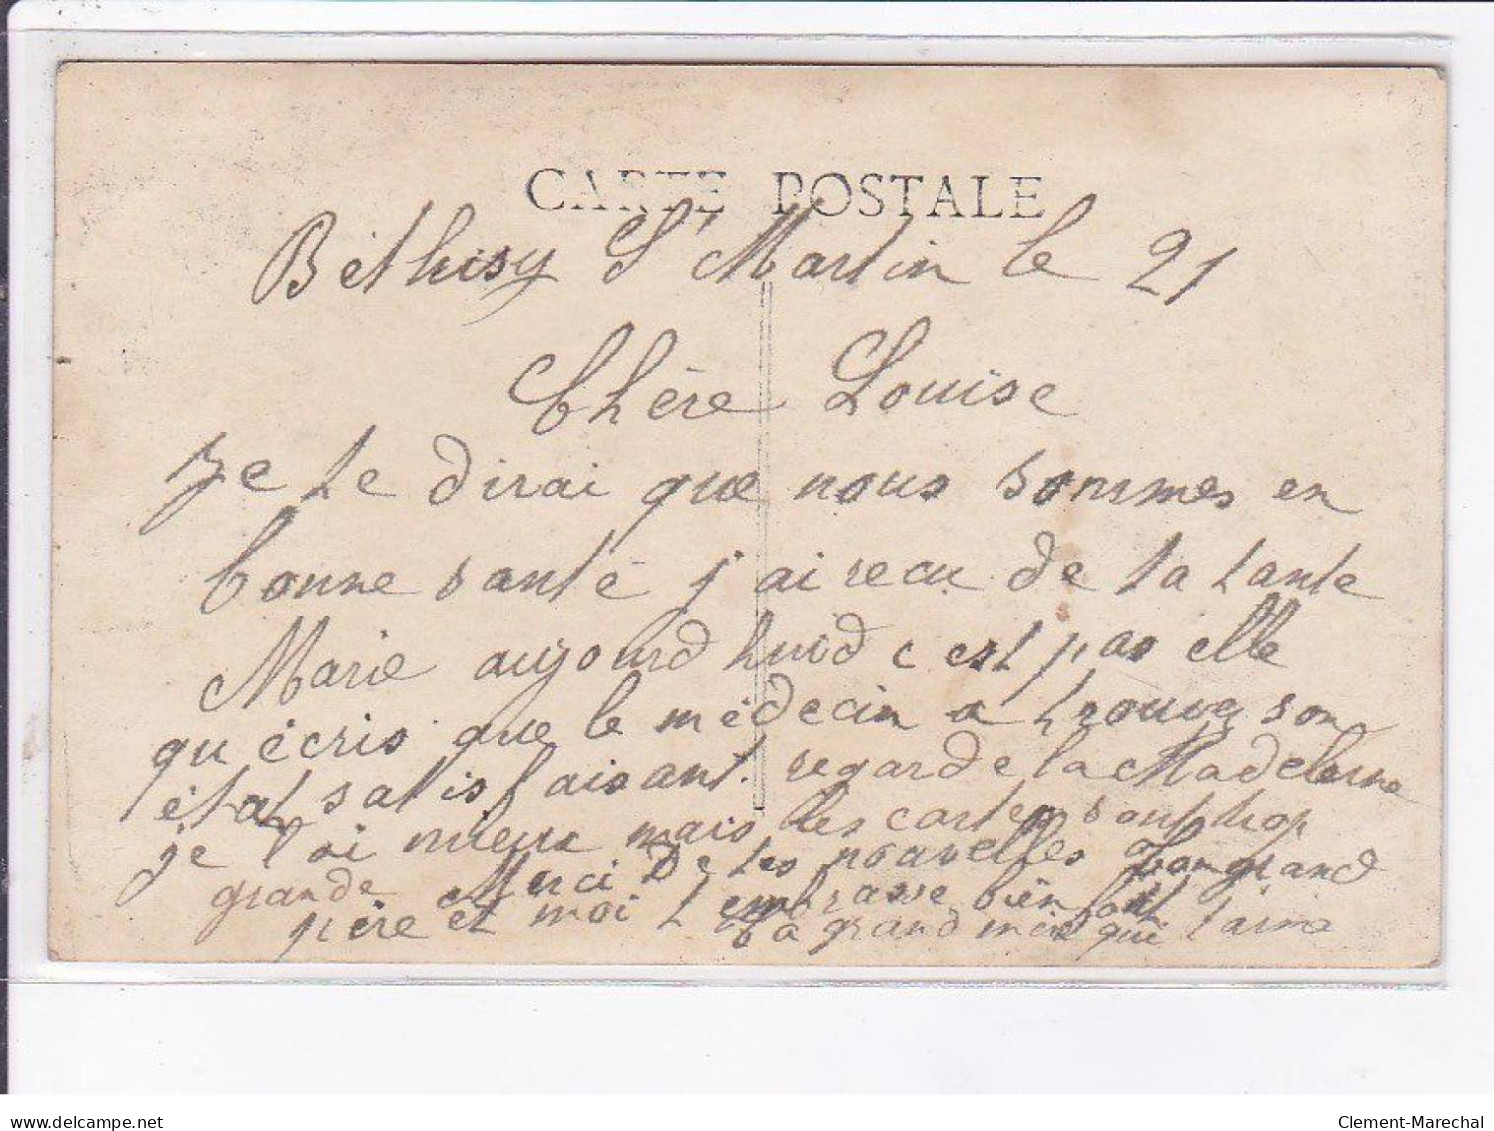 CARTE POSTALE
Béthisy St Martin le 21
Chère Louise
Je te dirai que nous sommes en
bonne santé j'ai recu de ta tante
Marie aujourd huid c est pas elle
qu écris que le médecin a trouvez son
état satisfaisant. regarde la Madeleine
je l'ai mieux mais les cartes sont trop
grande Merci De tes nouvelles ton grand
père et moi t embrasse bien fort
ta grand mère qui t'aime
delcampe.net
Clement-Marechal